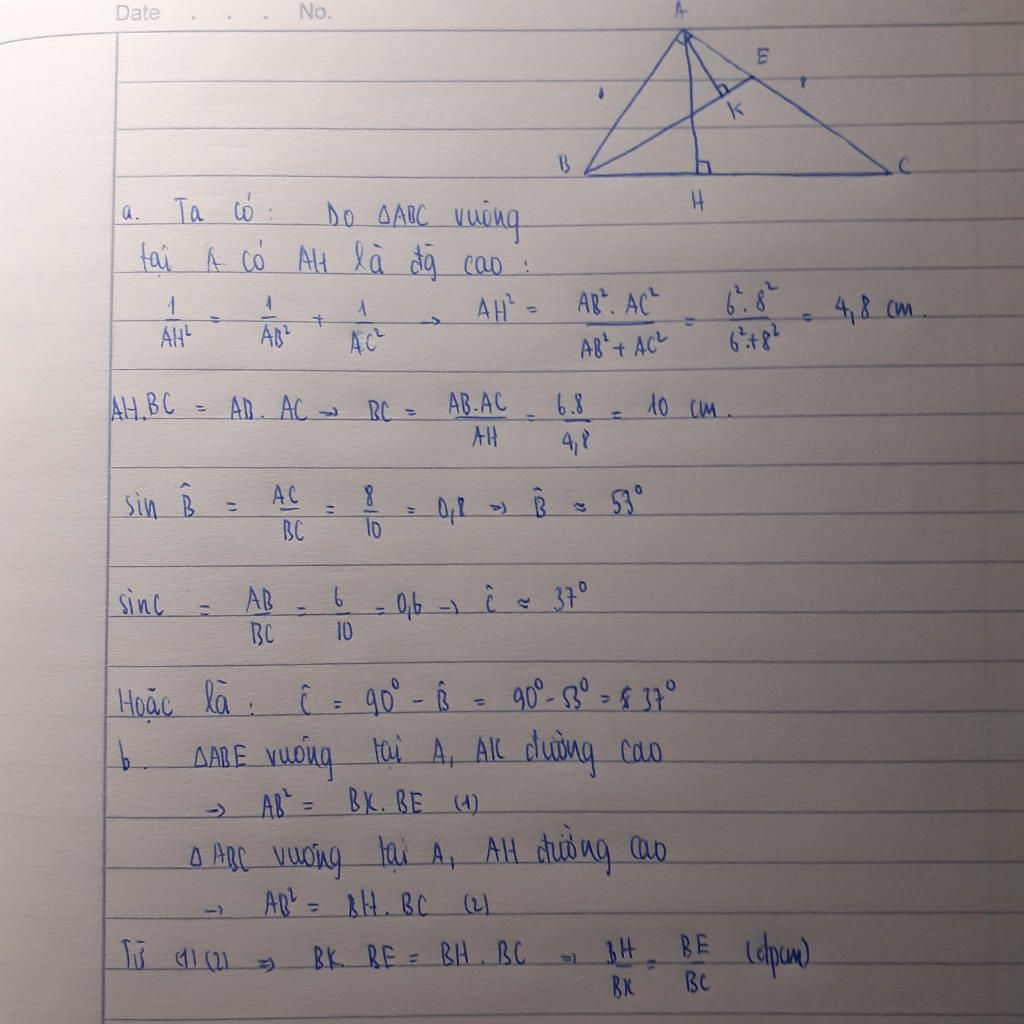 Date . . . No.
A
E
K
B
C
H
a. Ta có: Do ΔABC vuông
tại A có AH là đg cao:
1/AH² = 1/AB² + 1/AC² → AH² = AB².AC²/AB²+AC² = 6².8²/6²+8² = 4,8 cm.
AH.BC = AB.AC → BC = AB.AC/AH = 6.8/4,8 = 10 cm.
sin B̂ = AC/BC = 8/10 = 0,8 → B̂ ≈ 53°
sinC = AB/BC = 6/10 = 0,6 → Ĉ ≈ 37°
Hoặc là: Ĉ = 90° - B̂ = 90° - 53° = 37°
b. ΔABE vuông tại A, AK đường cao
→ AB² = BK.BE (1)
ΔABC vuông tại A, AH đường cao
→ AB² = BH.BC (2)
Từ (1)(2) ⇒ BK.BE = BH.BC ⇒ BH/BK = BE/BC (đpcm)